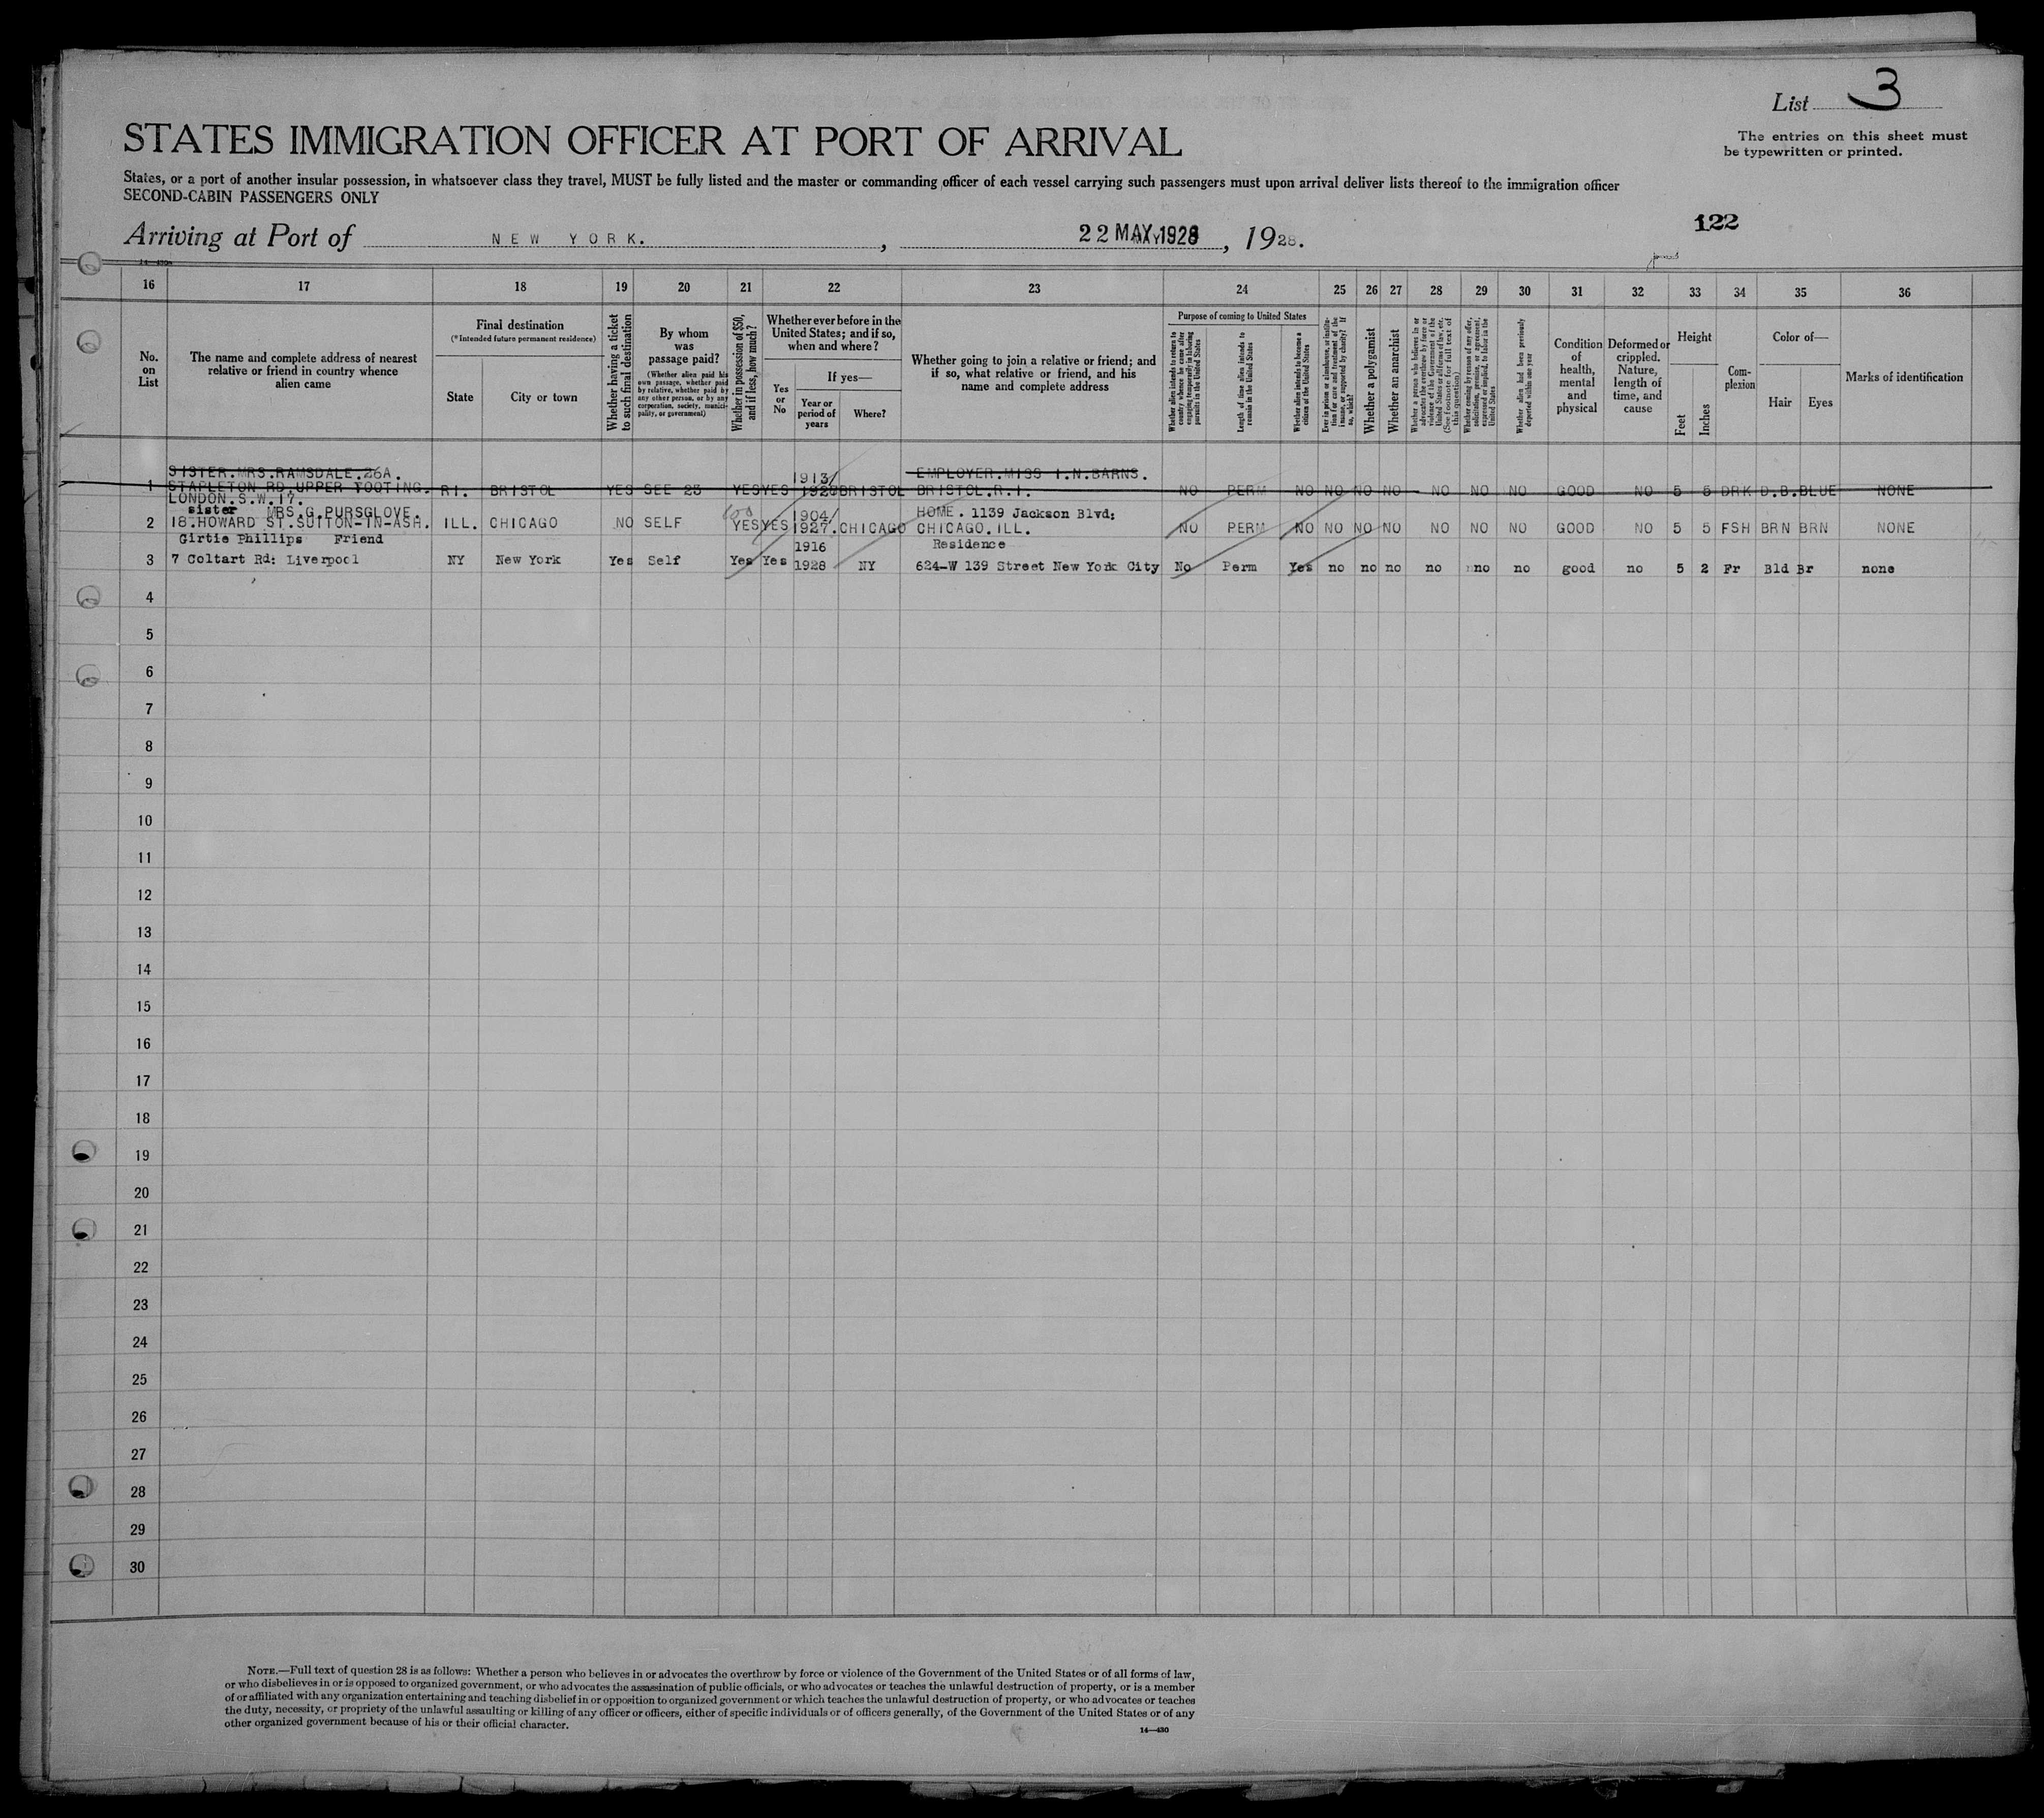 List 3
The entries on this sheet must
be typewritten or printed.
STATES IMMIGRATION OFFICER AT PORT OF ARRIVAL
States, or a port of another insular possession, in whatsoever class they travel, MUST be fully listed and the master or commanding officer of each vessel carrying such passengers must upon arrival deliver lists thereof to the immigration officer
SECOND-CABIN PASSENGERS ONLY
122
Arriving at Port of NEW YORK. , 22 MAY 1928 , 1928.
14—430
16 17 18 19 20 21 22 23 24 25 26 27 28 29 30 31 32 33 34 35 36
No.
on
List
The name and complete address of nearest
relative or friend in country whence
alien came
Final destination
(*Intended future permanent residence)
State
City or town
Whether having a ticket
to such final destination
By whom
was
passage paid?
(Whether alien paid his
own passage, whether paid
by relative, whether paid by
any other person, or by any
corporation, society, munici-
pality, or government)
Whether in possession of $50,
and if less, how much?
Whether ever before in the
United States; and if so,
when and where?
Yes
or
No
If yes—
Year or
period of
years
Where?
Whether going to join a relative or friend; and
if so, what relative or friend, and his
name and complete address
Purpose of coming to United States
Whether alien intends to return to
country whence he came after
engaging temporarily in laboring
pursuits in the United States
Length of time alien intends to
remain in the United States
Whether alien intends to become a
citizen of the United States
Ever in prison or almshouse, or institu-
tion for care and treatment of the
insane, or supported by charity? If
so, which?
Whether a polygamist
Whether an anarchist
Whether a person who believes in or
advocates the overthrow by force or
violence of the Government of the
United States or all forms of law, etc.
(See footnote for full text of
this question)
Whether coming by reason of any offer,
solicitation, promise, or agreement,
expressed or implied, to labor in the
United States
Whether alien had been previously
deported within one year
Condition
of
health,
mental
and
physical
Deformed or
crippled.
Nature,
length of
time, and
cause
Height
Feet
Inches
Com-
plexion
Color of—
Hair
Eyes
Marks of identification
SISTER.MRS.RAMSDALE.26A. 1913/ EMPLOYER.MISS I.N.BARNS.
1 STAPLETON RD UPPER TOOTING. RI. BRISTOL YES SEE 23 YES YES 1928 BRISTOL BRISTOL.R.I. NO PERM NO NO NO NO NO NO NO GOOD NO 5 5 DRK D.B. BLUE NONE
LONDON.S.W.17.
sister MRS.G.PURSGLOVE. 100 1904/ HOME. 1139 Jackson Blvd;
2 18.HOWARD ST.SUTTON-IN-ASH. ILL. CHICAGO NO SELF YES YES 1927. CHICAGO CHICAGO.ILL. NO PERM NO NO NO NO NO NO NO GOOD NO 5 5 FSH BRN BRN NONE
Girtie Phillips Friend 1916 Residence
3 7 Coltart Rd: Liverpool NY New York Yes Self Yes Yes 1928 NY 624-W 139 Street New York City No Perm Yes no no no no no no good no 5 2 Fr Bld Br none
4
5
6
7
8
9
10
11
12
13
14
15
16
17
18
19
20
21
22
23
24
25
26
27
28
29
30
NOTE.—Full text of question 28 is as follows: Whether a person who believes in or advocates the overthrow by force or violence of the Government of the United States or of all forms of law,
or who disbelieves in or is opposed to organized government, or who advocates the assassination of public officials, or who advocates or teaches the unlawful destruction of property, or is a member
of or affiliated with any organization entertaining and teaching disbelief in or opposition to organized government or which teaches the unlawful destruction of property, or who advocates or teaches
the duty, necessity, or propriety of the unlawful assaulting or killing of any officer or officers, either of specific individuals or of officers generally, of the Government of the United States or of any
other organized government because of his or their official character.
14—430